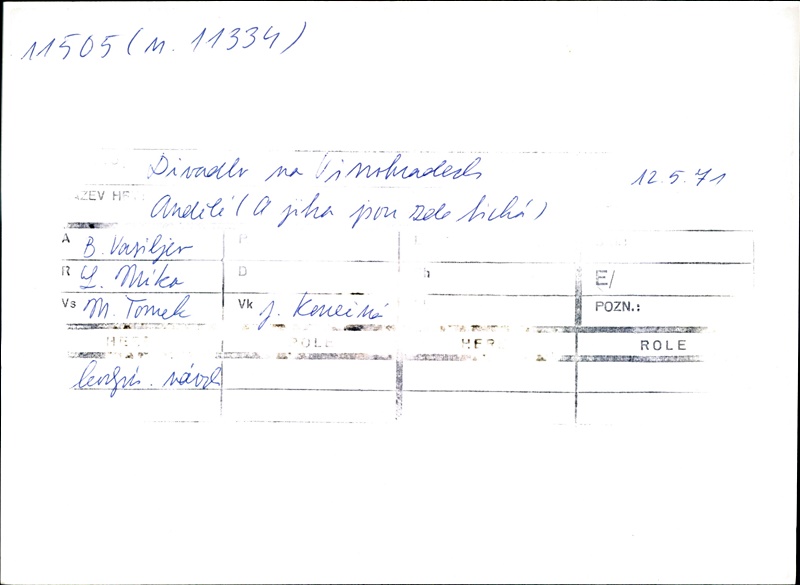 11505 (n. 11334)
Divadlo na Vinohradech
12.5.71
Andělé (A jitra jsou zde tichá)
A B. Vasiljev
P
R L. Mika
D
E/
Vs M. Tomek
Vk J. Konečná
POZN.:
ROLE
ROLE
návrh